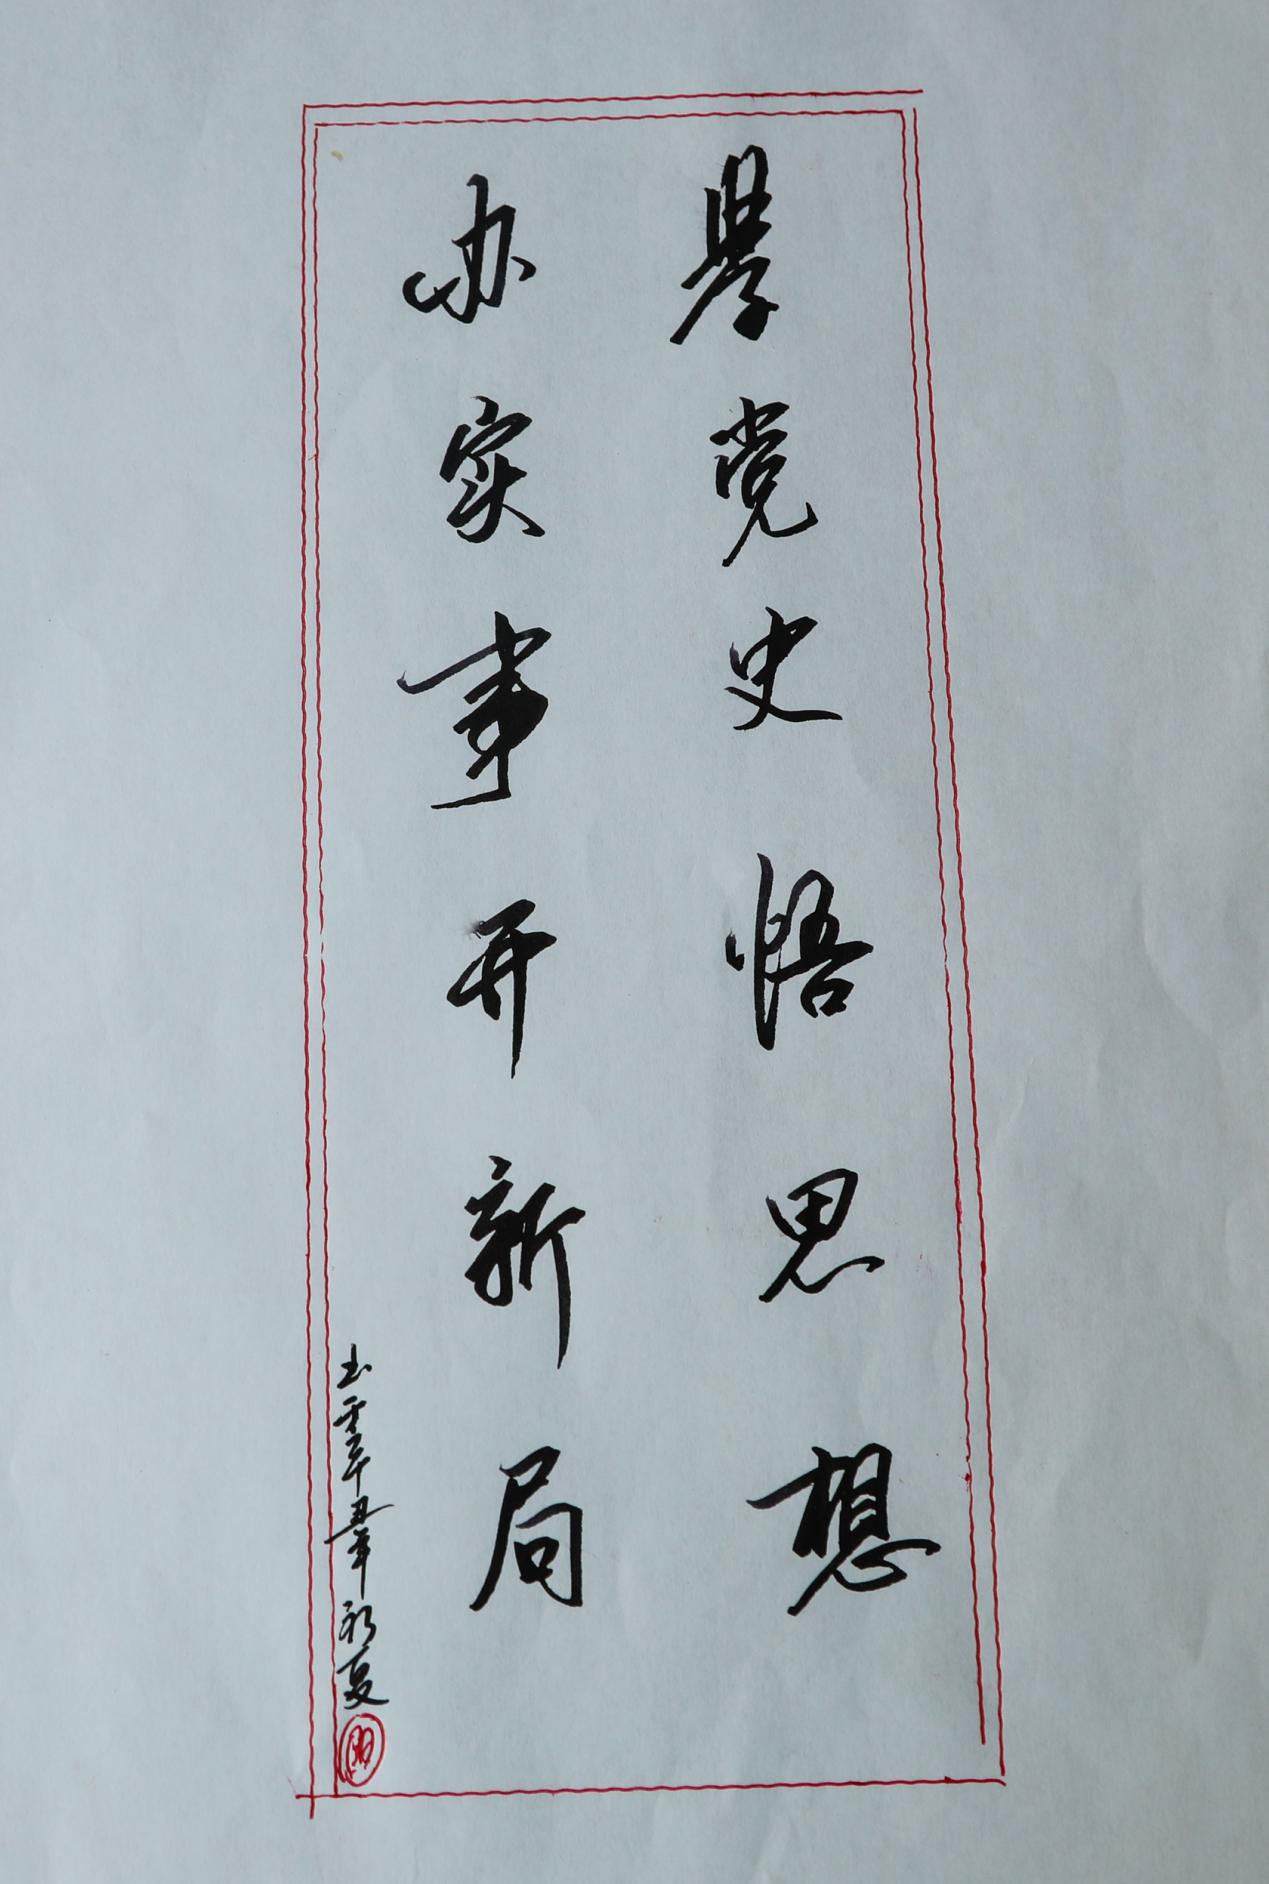 學党史悟思想
办实事开新局
辛丑年初夏